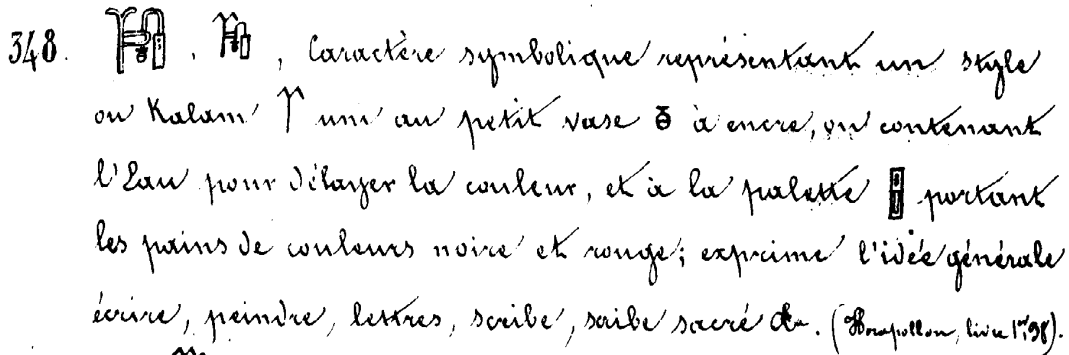 348. , Caractère symbolique représentant un style
ou Kalam uni au petit vase à encre, ou contenant
l'Eau pour délayer la couleur, et à la palette portant
les pains de couleurs noire et rouge; exprime l'idée générale
écrire, peindre, lettres, scribe, scribe sacré &c. (Horapollon, livre 1er, 38).